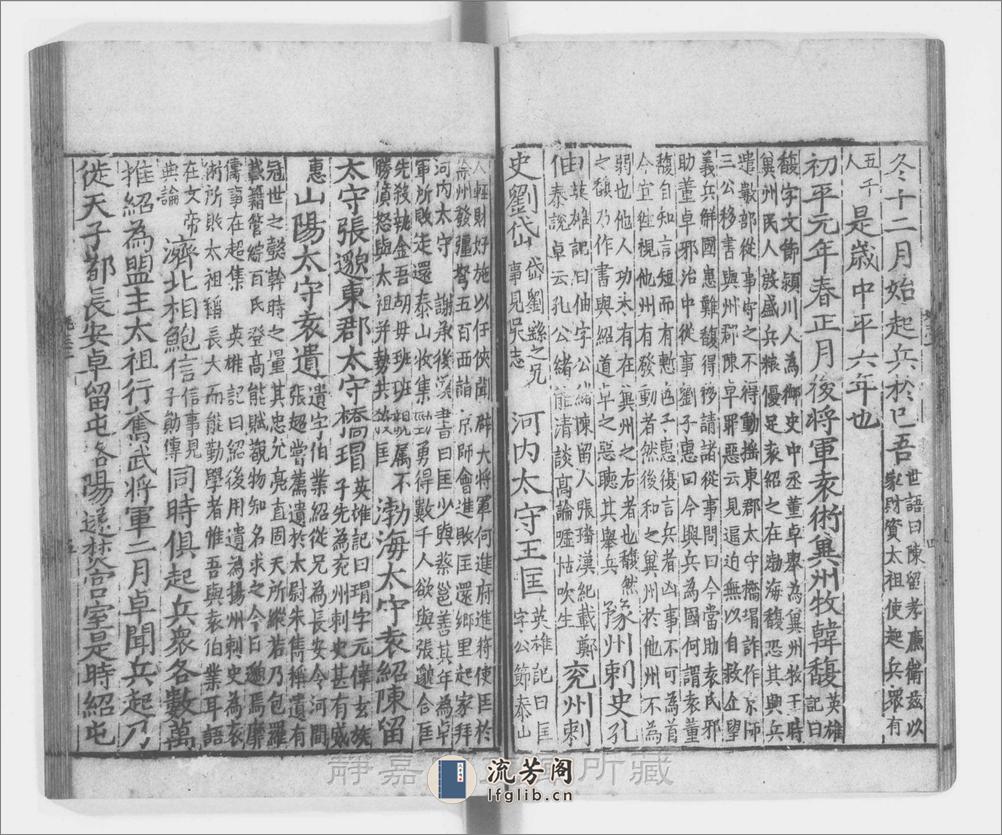 冬十二月始起兵於己吾
世語曰陳留孝廉衛兹以
家財資太祖使起兵眾有
五千
人
是歲中平六年也
初平元年春正月後將軍袁術兾州牧韓馥
英雄
記曰
馥字文節潁川人為御史中丞董卓舉為兾州牧于時
兾州民人殷盛兵粮優足袁紹之在渤海馥恐其興兵
遣數部從事守之不得動搖東郡太守橋瑁詐作京師
三公移書與州郡陳卓罪惡云見逼迫無以自救企望
義兵解國患難馥得移請諸從事問曰今當助袁氏邪
助董卓邪治中從事劉子惠曰今興兵為國何謂袁董
馥自知言短而有慙色子惠復言兵者凶事不可為首
今宜往視他州有發動者然後和之兾州於他州不為
弱也他人功未有在兾州之右者也馥然
之馥乃作書與紹道卓之惡聽其舉兵
豫州刺史孔
伷
英雄記曰伷字公緒陳留人張璠漢紀載鄭
泰說卓云孔公緒能清談高論噓枯吹生
兖州刺
史劉岱
岱劉繇之兄
事見吳志
河内太守王匡
英雄記曰匡
字公節泰山
人輕財好施以任俠聞辟大將軍何進府進符使匡於
徐州發彊弩五百西詣京師會進敗匡還鄉里起家拜
河内太守 謝承後漢書曰匡少與蔡邕善其年為卓
軍所敗走還泰山收集勁勇得數千人欲與張邈合匡
先殺執金吾胡毋班班親屬不
勝憤怒與太祖并勢共殺匡
渤海太守袁紹陳留
太守張邈東郡太守橋瑁
英雄記曰瑁字元偉玄族
子先為兖州刺史甚有威
惠
山陽太守袁遺
遺字伯業紹從兄為長安令河間
張超嘗薦遺於太尉朱儁稱遺有
冠世之懿幹時之量其忠允亮直固天所縱若乃包羅
載籍管綜百氏登高能賦觀物知名求之今日邈焉靡
儔事在超集 英雄記曰紹後用遺為揚州刺史為袁
術所敗太祖稱長大而能勤學者惟吾與袁伯業耳語
在文帝
典論
濟北相鮑信
信事見
子勛傳
同時俱起兵眾各數萬
推紹為盟主太祖行奮武將軍二月卓聞兵起乃
徙天子都長安卓留屯洛陽遂焚宫室是時紹屯
静嘉 所藏
流芳阁
lfglib.cn